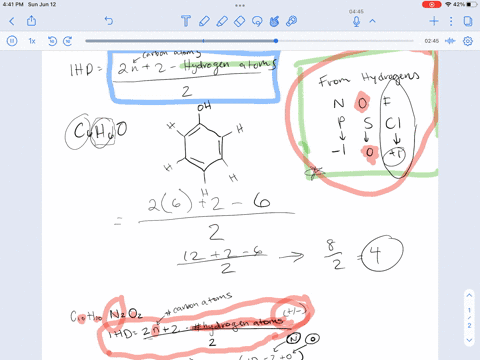 4:41 PM Sun Jun 12
42%
04:45
1x
02:45
carbon atoms
IHD = 2n+2 - Hydrogen atoms
2
From Hydrogens
N O F
P S Cl
-1 0 +1
C6H6O
OH
H H
H H
H
= 2(6)+2-6
2
12+2-6
2
→ 8
2
= 4
C10H10 N2O2
#carbon atoms
(+/-)
IHD= 2n+2 - #hydrogen atoms
2
N O
1
2